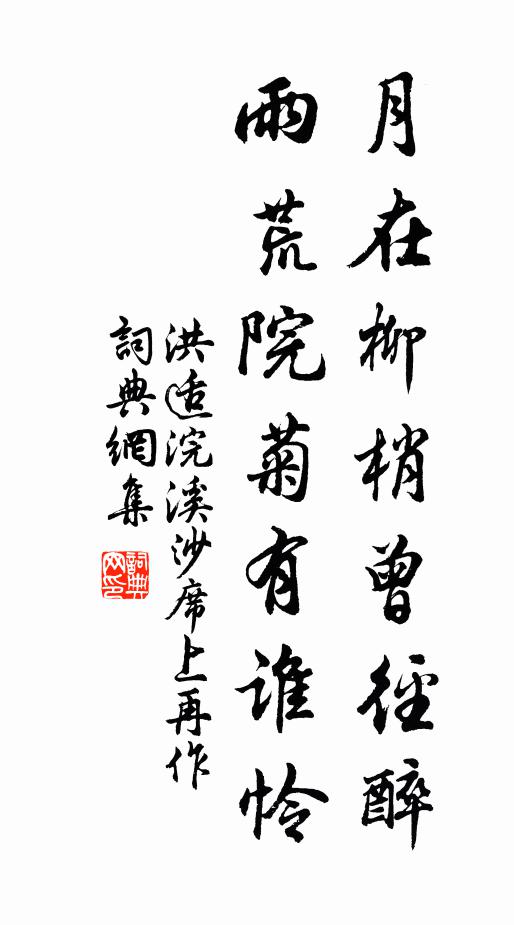 月在柳梢曾徑醉
雨荒院菊有誰怜
洪适浣溪沙席上再作
詞典網集
詞典网印